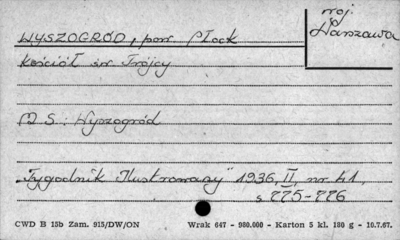 woj.
Warszawa
WYSZOGRÓD, pow. Płock
Kościół św. Trójcy
M S: Wyszogród
„Tygodnik Ilustrowany" 1936, II, nr 41,
s 775-776
CWD B 15b Zam. 915/DW/ON Wrak 647 - 980.000 - Karton 5 kl. 180 g - 10.7.67.